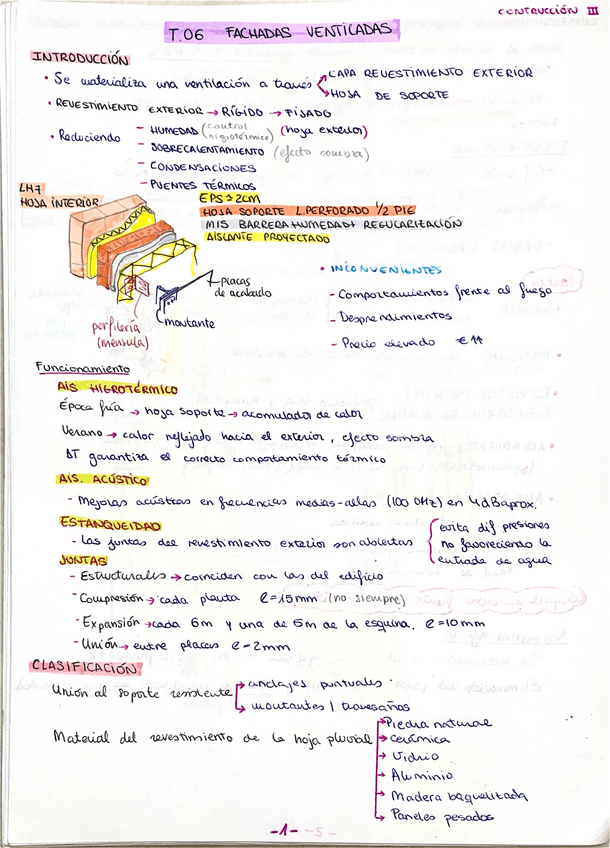 CONTRUCCIÓN III
T.06 FACHADAS VENTILADAS
INTRODUCCIÓN
• Se materializa una ventilación a través
CAPA REVESTIMIENTO EXTERIOR
HOJA DE SOPORTE
• REVESTIMIENTO EXTERIOR → RÍGIDO → FIJADO
• Reduciendo
- HUMEDAD (control higrotérmico) (hoja exterior)
- SOBRECALENTAMIENTO (efecto sombra)
- CONDENSACIONES
- PUENTES TÉRMICOS
LH7
HOJA INTERIOR
EPS ≥ 2cm
HOJA SOPORTE L.PERFORADO 1/2 PIE
M15 BARRERA HUMEDAD + REGULARIZACIÓN
AISLANTE PROYECTADO
placas de acabado
montante
perfilería (ménsula)
• INCONVENIENTES
- Comportamientos frente al fuego
- Desprendimientos
- Precio elevado €↑↑
Funcionamiento
AIS HIGROTÉRMICO
Época fría → hoja soporte → acumulador de calor
Verano → calor reflejado hacia el exterior, efecto sombra
ΔT garantiza el correcto comportamiento térmico
AIS. ACÚSTICO
- Mejoras acústicas en frecuencias medias-altas (100 0Hz) en 4dB aprox.
ESTANQUEIDAD
- Las juntas del revestimiento exterior son abiertas
evita dif presiones
no favoreciendo la
entrada de agua
JUNTAS
- Estructurales → coinciden con las del edificio
- Compresión → cada planta e = 15mm (no siempre)
- Expansión → cada 6m y una de 5m de la esquina. e = 10mm
- Unión → entre placas e - 2mm
CLASIFICACIÓN
Unión al soporte resistente
anclajes puntuales
montantes / travesaños
Material del revestimiento de la hoja pluvial
Piedra natural
Cerámica
Vidrio
Aluminio
Madera baquelitada
Paneles pesados
-1-